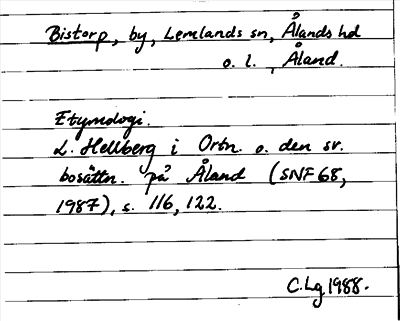 Bistorp, by, Lemlands sn, Ålands hd
o. l., Åland.
Etymologi.
L. Hellberg i Ortn. o. den sv.
bosättn. på Åland (SNF 68,
1987), s. 116, 122.
C. Lg 1988.